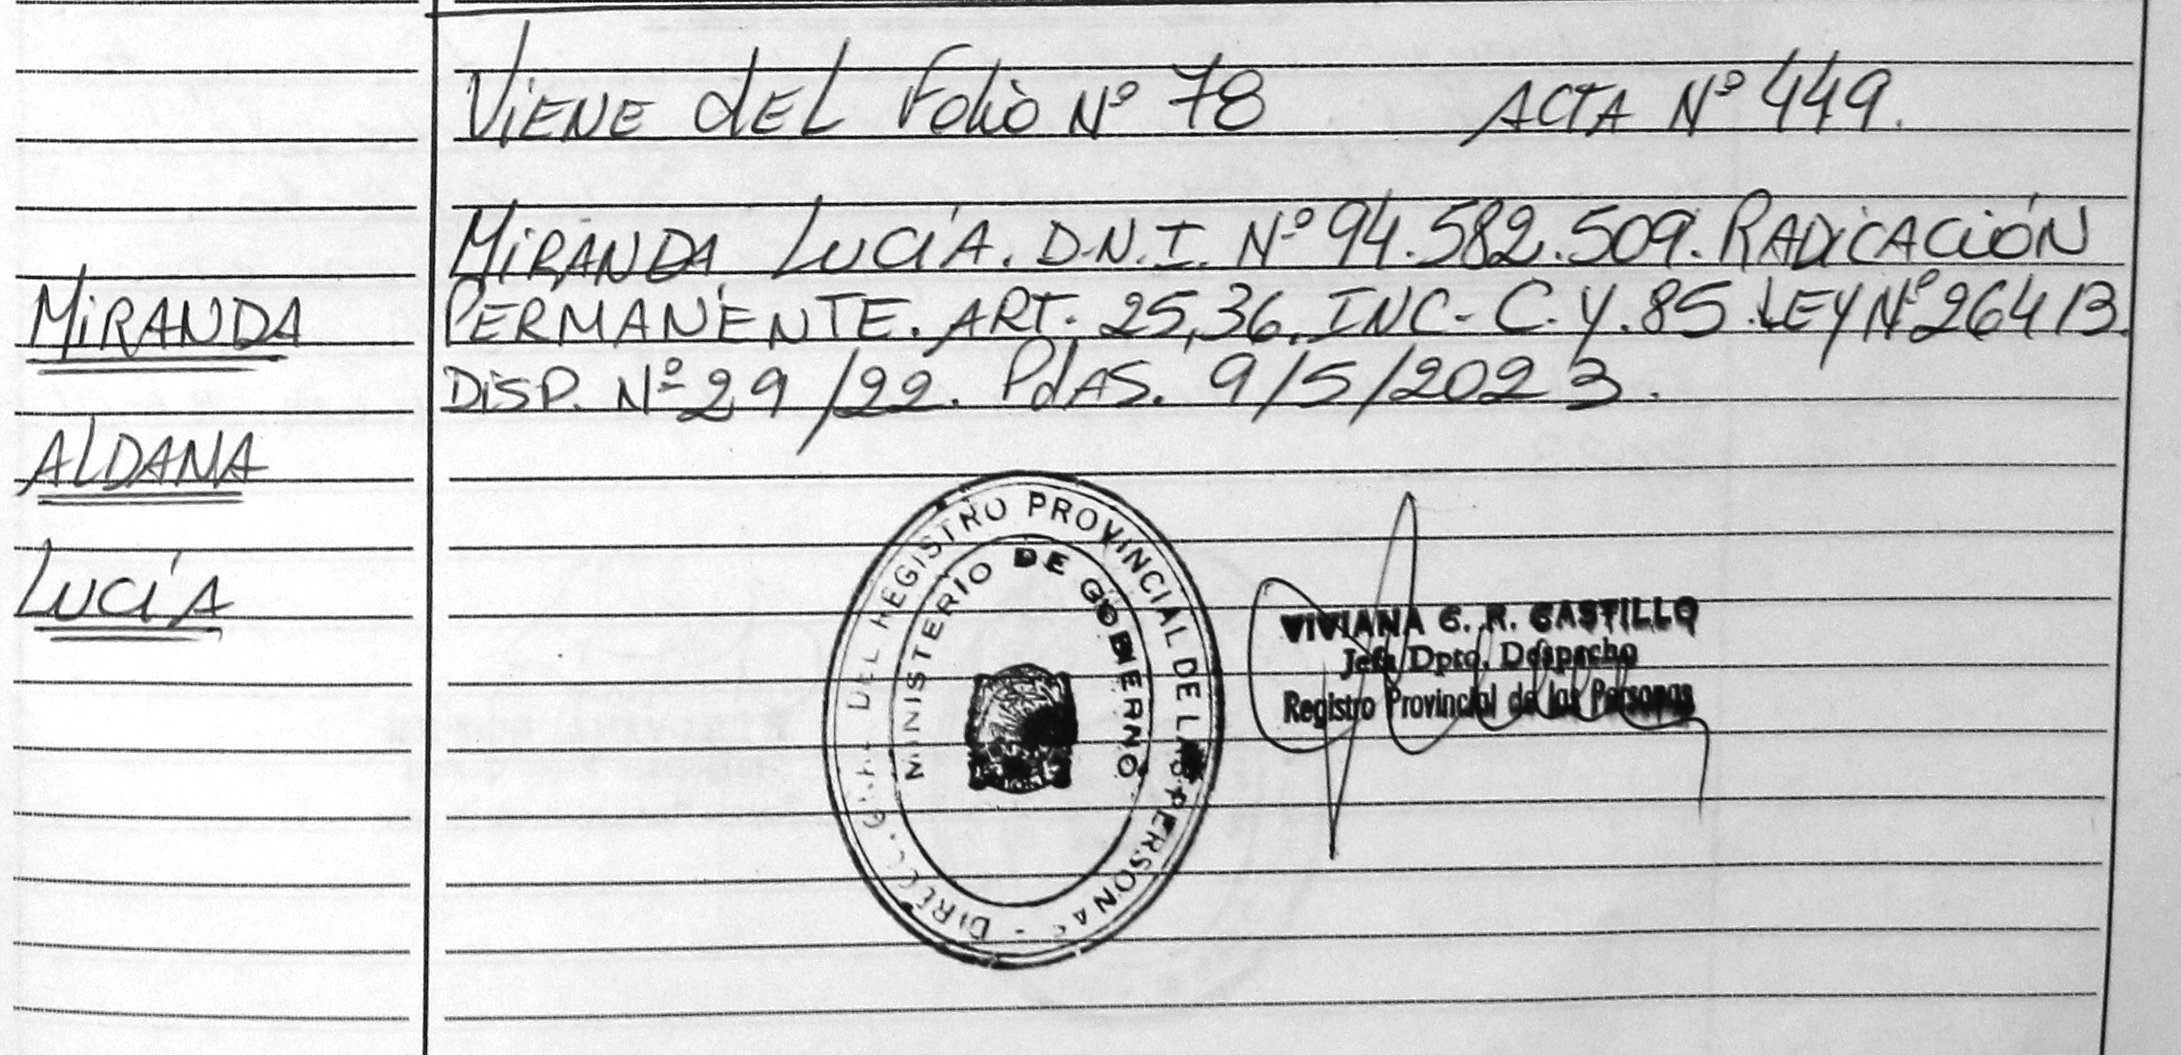 Viene del Folio Nº 78 ACTA Nº 449.
MIRANDA LUCÍA. D.N.I. Nº 94.582.509. RADICACIÓN
PERMANENTE. ART. 25,36. INC. C. Y. 85. LEY Nº 26413.
DISP. Nº 29/22. PdAS. 9/5/2023.
MIRANDA
ALDANA
LUCÍA
REGISTRO PROVINCIAL DE LAS PERSONAS
MINISTERIO DE GOBIERNO
VIVIANA G. R. CASTILLO
Jefa Dpto. Despacho
Registro Provincial de las Personas